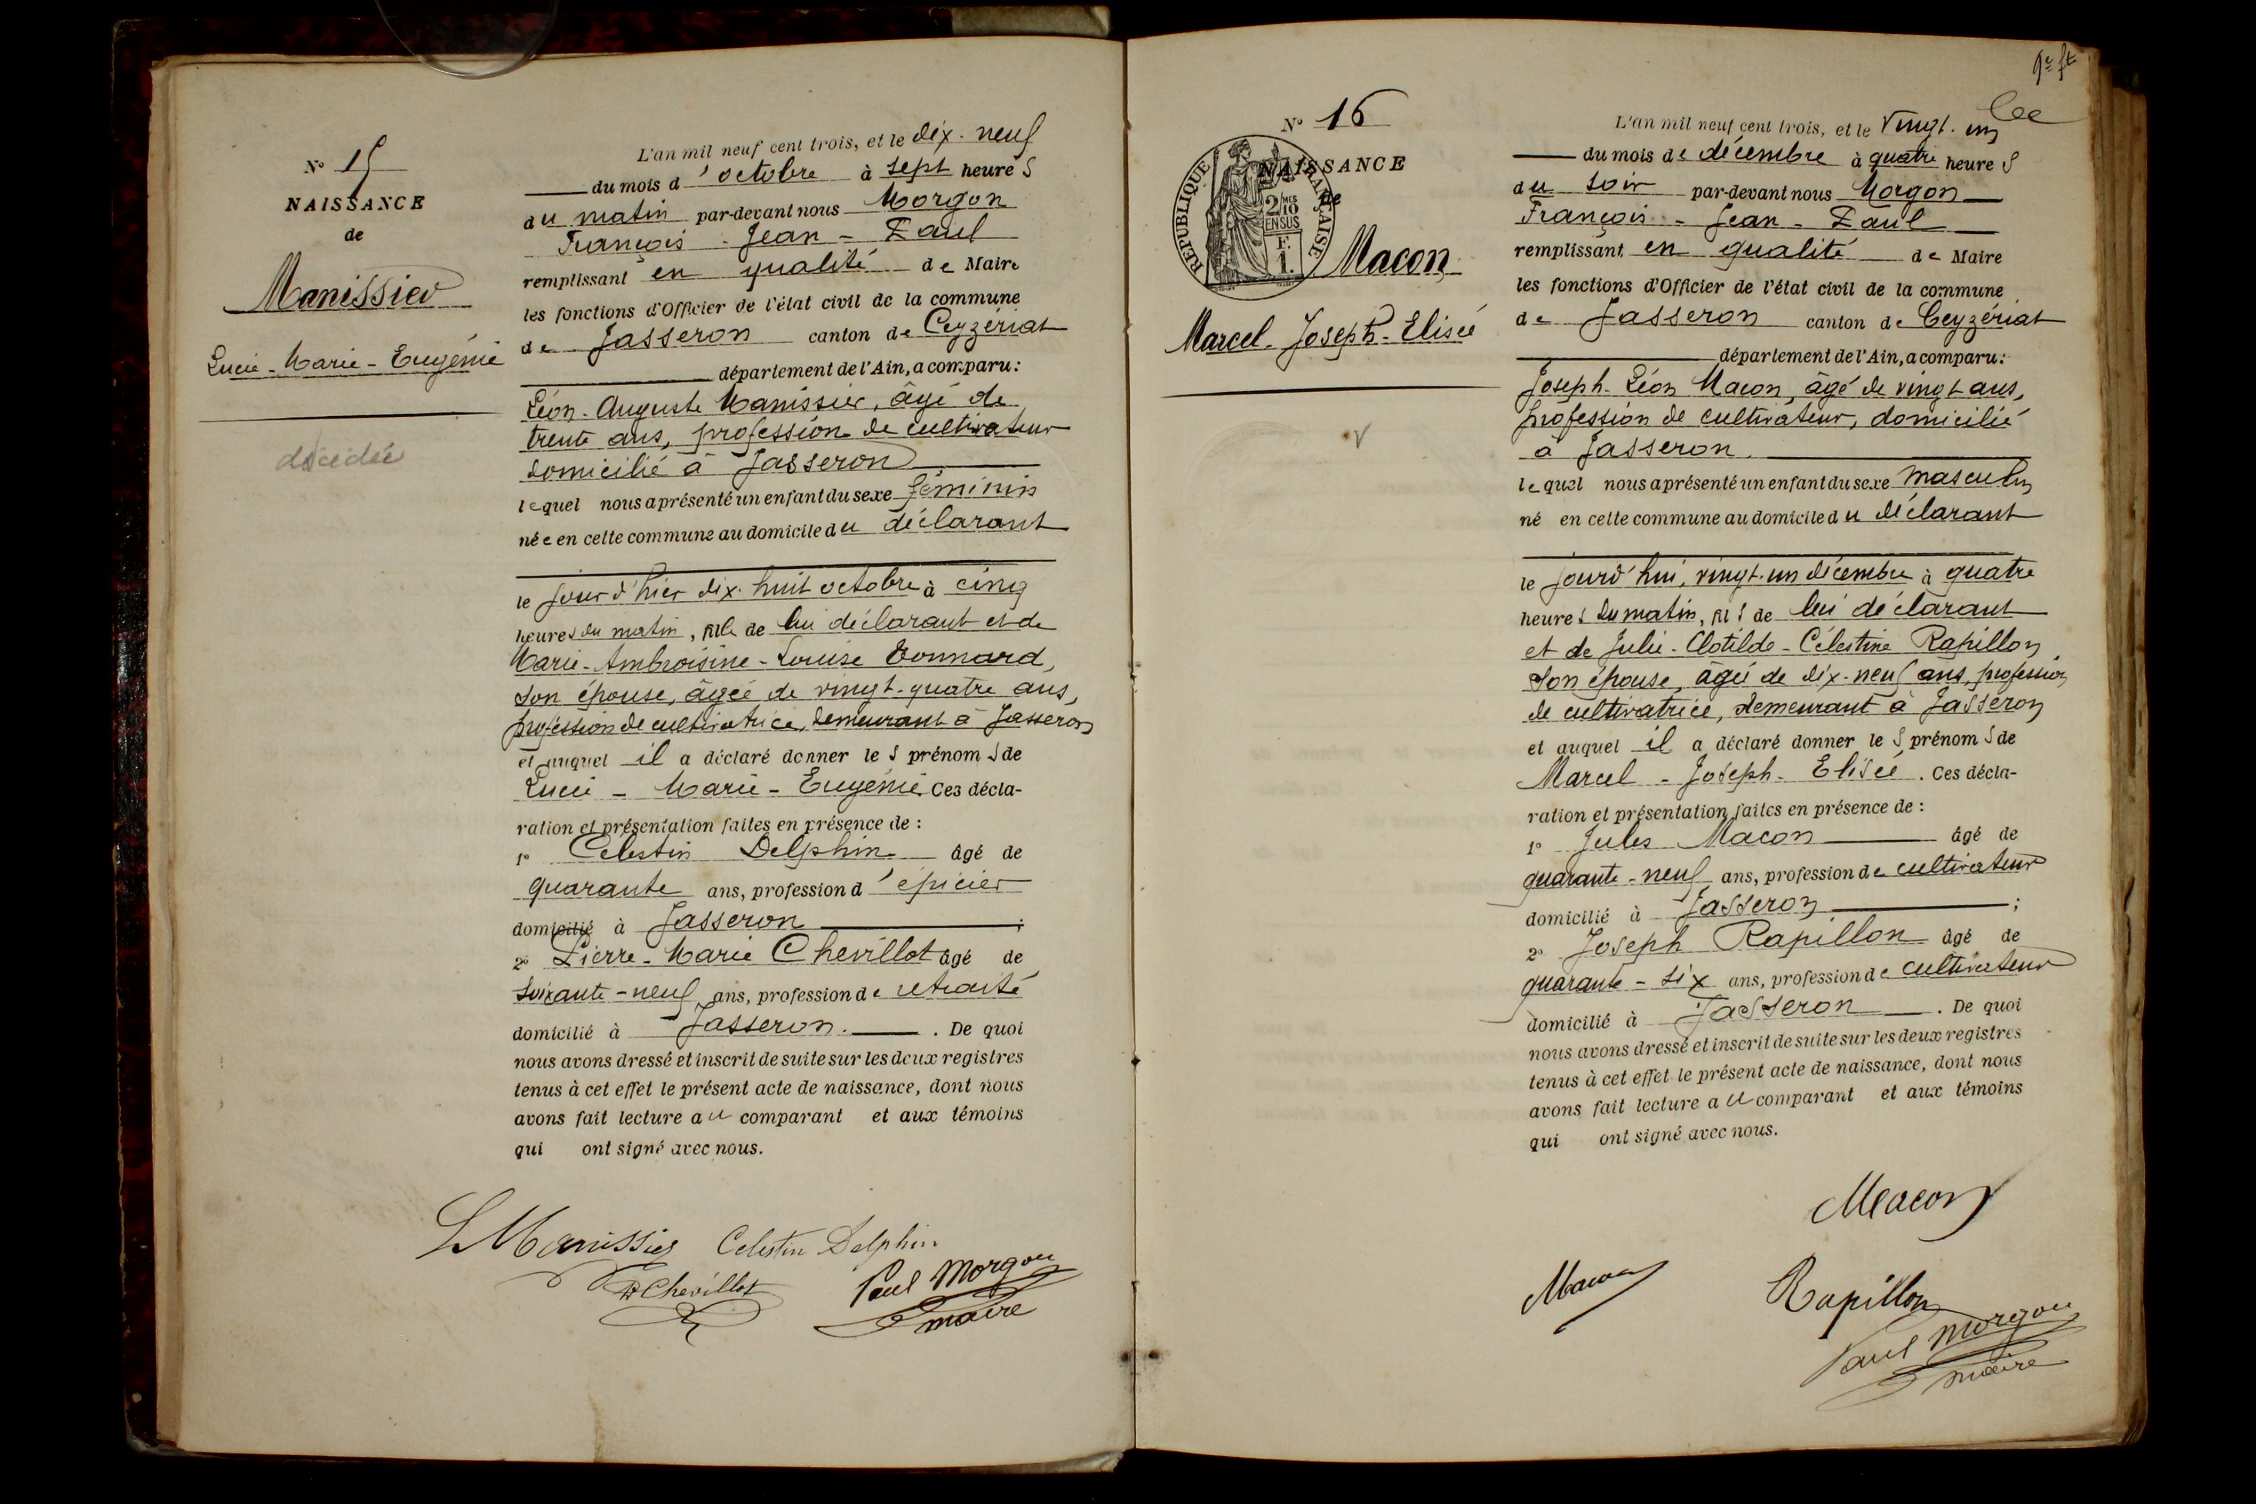 N° 15
NAISSANCE
de
Manissier
Lucie-Marie-Eugénie
décédée
L'an mil neuf cent trois, et le dix-neuf
du mois d'octobre à sept heures
du matin par-devant nous Morgon
François-Jean-Paul
remplissant en qualité de Maire
les fonctions d'Officier de l'état civil de la commune
de Jasseron canton de Ceyzériat
département de l'Ain, a comparu:
Léon-Auguste Manissier, âgé de
trente ans, profession de cultivateur
domicilié à Jasseron
lequel nous a présenté un enfant du sexe féminin
née en cette commune au domicile du déclarant
le jourd'hier dix-huit octobre à cinq
heures du matin, fille de lui déclarant et de
Marie-Ambroisine-Louise Bonnard,
son épouse, âgée de vingt-quatre ans,
profession de cultivatrice, demeurant à Jasseron
et auquel il a déclaré donner les prénoms de
Lucie-Marie-Eugénie. Ces décla-
ration et présentation faites en présence de :
1° Célestin Delphin âgé de
quarante ans, profession d'épicier
domicilié à Jasseron ;
2° Pierre-Marie Chevillot âgé de
soixante-neuf ans, profession de retraité
domicilié à Jasseron. De quoi
nous avons dressé et inscrit de suite sur les deux registres
tenus à cet effet le présent acte de naissance, dont nous
avons fait lecture au comparant et aux témoins
qui ont signé avec nous.
L Manissier Celestin Delphin
Chevillot Paul Morgon
maire
N° 16
NAISSANCE
de
RÉPUBLIQUE FRANÇAISE
2 MES 10 EN SUS
F. 1.
Macon
Marcel-Joseph-Elisée
L'an mil neuf cent trois, et le vingt-un
du mois de décembre à quatre heures
du soir par-devant nous Morgon
François-Jean-Paul
remplissant en qualité de Maire
les fonctions d'Officier de l'état civil de la commune
de Jasseron canton de Ceyzériat
département de l'Ain, a comparu:
Joseph-Léon Macon, âgé de vingt ans,
profession de cultivateur, domicilié
à Jasseron.
lequel nous a présenté un enfant du sexe masculin
né en cette commune au domicile du déclarant
le jourd'hui, vingt-un décembre à quatre
heures du matin, fils de lui déclarant
et de Julie-Clotilde-Célestine Rapillon
son épouse, âgée de dix-neuf ans, profession
de cultivatrice, demeurant à Jasseron
et auquel il a déclaré donner les prénoms de
Marcel-Joseph-Elisée. Ces décla-
ration et présentation faites en présence de :
1° Jules Macon âgé de
quarante-neuf ans, profession de cultivateur
domicilié à Jasseron ;
2° Joseph Rapillon âgé de
quarante-six ans, profession de cultivateur
domicilié à Jasseron. De quoi
nous avons dressé et inscrit de suite sur les deux registres
tenus à cet effet le présent acte de naissance, dont nous
avons fait lecture au comparant et aux témoins
qui ont signé avec nous.
Macon
Macon Rapillon
Paul Morgon
maire